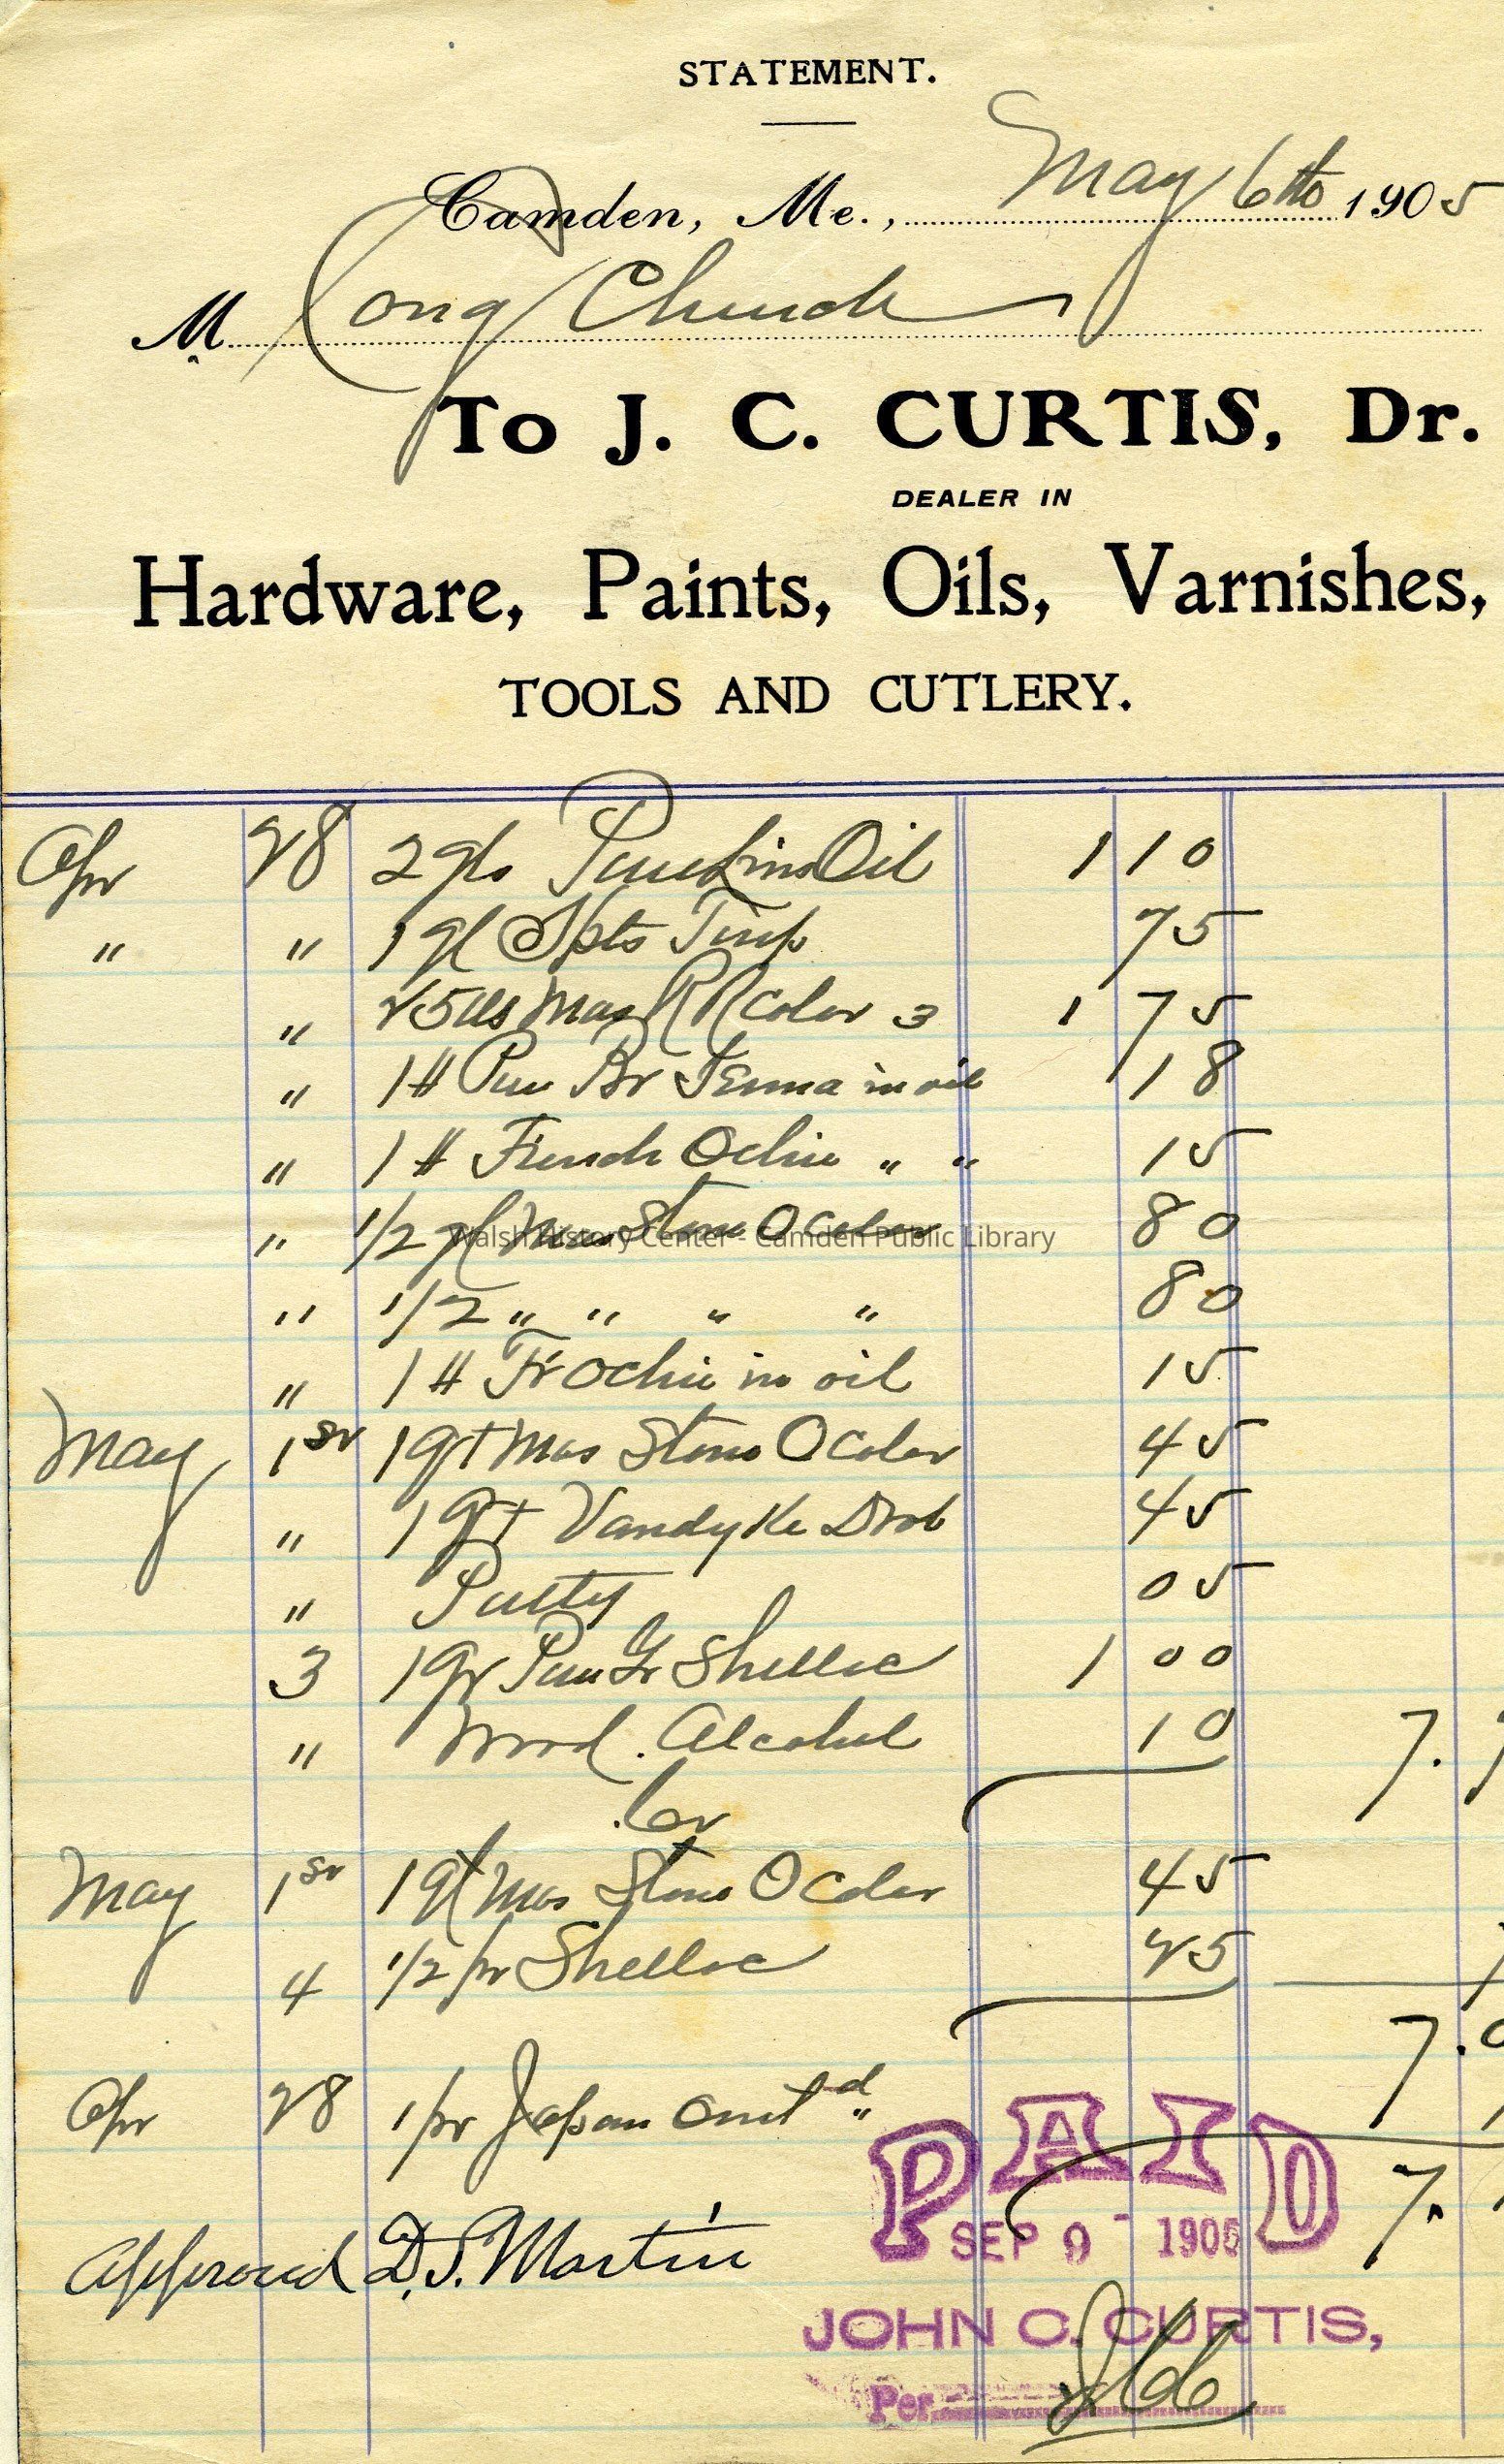 STATEMENT.
Camden, Me., May 6th 1905
M Cong Church
To J. C. CURTIS, Dr.
DEALER IN
Hardware, Paints, Oils, Varnishes,
TOOLS AND CUTLERY.
Apr 28 2 gls Oil 1 10
" " 1 gl Spts Turp 75
" 25 lbs Mas R R Color 3 1 75
" 1# Pure Br Sienna in oil 18
" 1# French Ochre " " 15
" 1/2 gl Mas Stone O color 80
Walsh History Center - Camden Public Library
" 1/2 " " " " 80
" 1# Fr Ochre in oil 15
May 1st 1 qt Mas Stone O Color 45
" 1 qt Vandyke Drab 45
" Putty 05
3 1 Pure Shellac 1 00
" Wood Alcohol 10 7.
Cr
May 1st 1 qt Mas Stone O Color 45
4 1/2 Shellac 25
7.0
Apr 28 1 Japan omit'd
7.
Approved D. S. Martin
PAID
SEP 9 - 1905
JOHN C. CURTIS,
Per